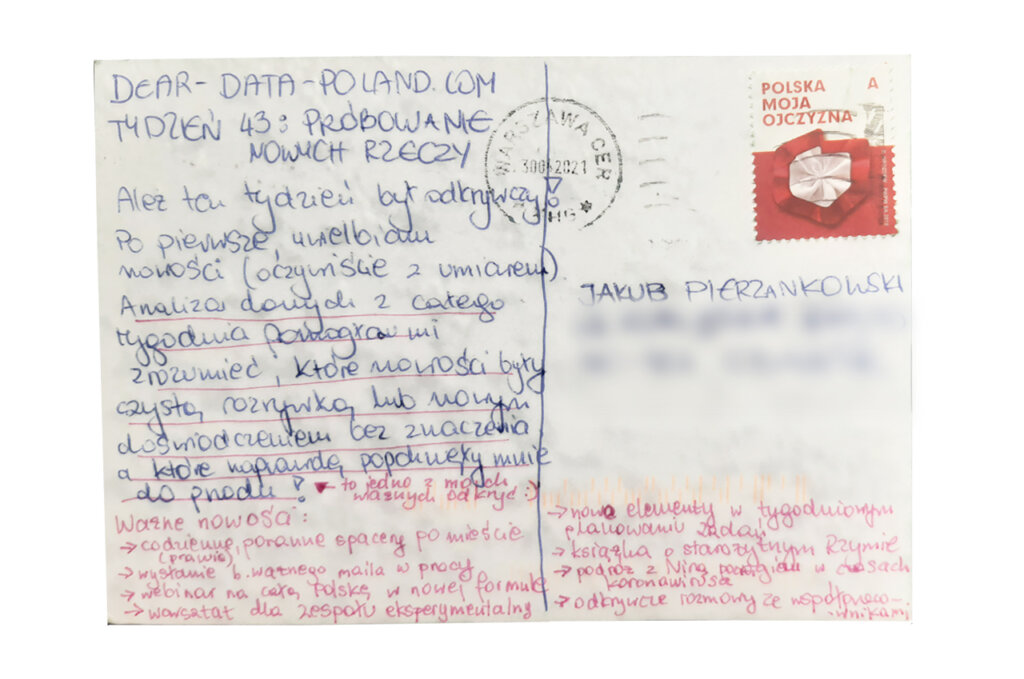 DEAR-DATA-POLAND.COM
TYDZIEŃ 43: PRÓBOWANIE
NOWYCH RZECZY
Ależ ten tydzień był odkrywczy!
Po pierwsze, uwielbiam
nowości (oczywiście z umiarem)
Analiza danych z całego
tygodnia pomogła mi
zrozumieć, które nowości były
czystą rozrywką lub nowym
doświadczeniem bez znaczenia
a które naprawdę popchnęły mnie
do przodu!
to jedno z moich
ważnych odkryć :)
Ważne nowości:
→ codzienne, poranne spacery po mieście
(prawie)
→ wysłanie b. ważnego maila w pracy
→ webinar na całą Polskę w nowej formule
→ warsztat dla zespołu eksperymentalny
WARSZAWA CER
2021
POLSKA A
MOJA
OJCZYZNA
JAKUB PIERZANKOWSKI
→ nowe elementy w tygodniowym
planowaniu zadań
→ książka o starożytnym Rzymie
→ podróż z Niną pociągiem w czasach
koronawirusa
→ odkrywcze rozmowy ze współpraco-
wnikami